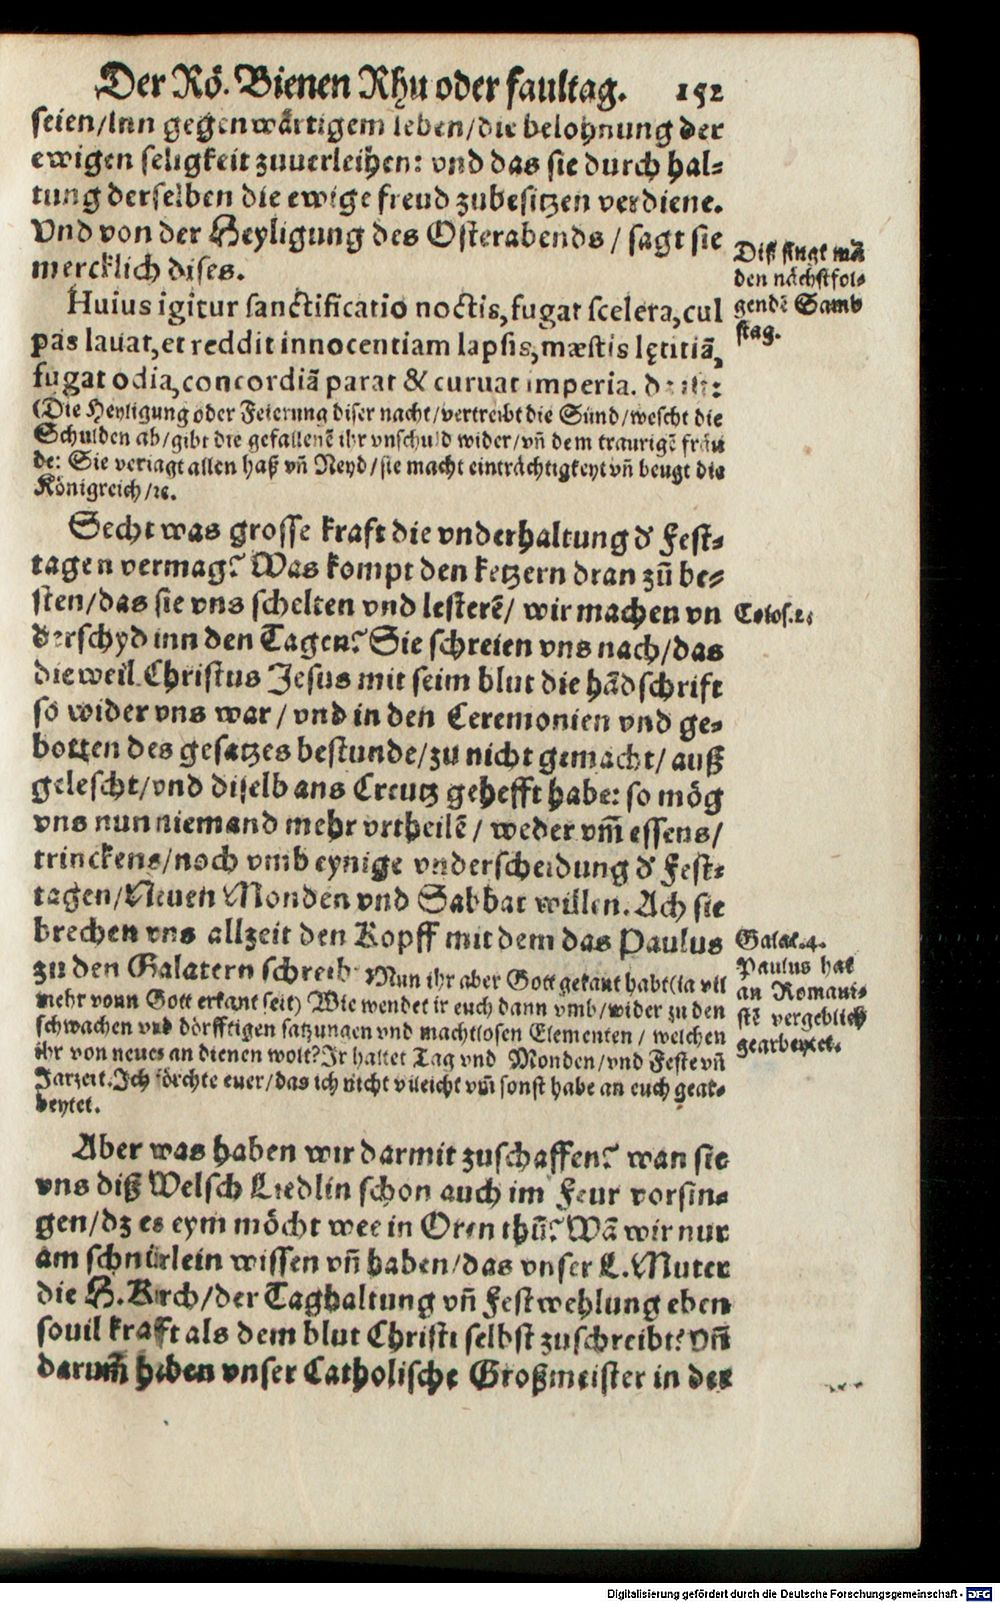 Der Rö. Bienen Rhu oder faultag. 152
seien/inn gegenwärtigem leben/die belohnung der
ewigen seligkeit zuuerleihen: vnd das sie durch hal=
tung derselben die ewige freud zubesitzen verdiene.
Vnd von der Heyligung des Osterabends / sagt sie
mercklich dises.
Diß singt mã
den nächstfol=
gendẽ Samb
stag.
Huius igitur sanctificatio noctis, fugat scelera, cul
pas lauat, et reddit innocentiam lapsis, mæstis lętitiã,
fugat odia, concordiã parat & curuat imperia.
(Die Heyligung oder Feierung diser nacht/vertreibt die Sünd/wescht die
Schulden ab/gibt die gefallenẽ ihr vnschuld wider/vñ dem traurigẽ fräu
de: Sie veriagt allen haß vñ Neyd/sie macht einträchtigkeyt vñ beugt die
Königreich/ꝛc.
Secht was grosse kraft die vnderhaltung d' Fest=
tagen vermag? Was kompt den ketzern dran zů be=
sten/das sie vns schelten vnd lesterẽ/ wir machen vn
derschyd inn den Tagen? Sie schreien vns nach/das
die weil Christus Jesus mit seim blut die hãdschrift
so wider vns war / vnd in den Ceremonien vnd ge=
botten des gesatzes bestunde/zu nicht gemacht/ auß
gelescht/vnd diselb ans Creutz gehefft habe: so mög
vns nun niemand mehr vrtheilẽ / weder vm̃ essens/
trinckens/noch vmb eynige vnderscheidung d' Fest=
tagen/Neuen Monden vnd Sabbat willen. Ach sie
brechen vns allzeit den Kopff mit dem das Paulus
zu den Galatern schreib Nun ihr aber Gott gekant habt(ia vil
mehr vonn Gott erkant seit) Wie wendet ir euch dann vmb/wider zu den
schwachen vnd dörfftigen satzungen vnd machtlosen Elementen / welchen
ihr von neues an dienen wolt? Ir haltet Tag vnd Monden/vnd Feste vñ
Jarzeit. Ich förchte euer/das ich nicht vileicht vm̃ sonst habe an euch gear=
beytet.
Colos.2.
Galat.4.
Paulus hat
an Romani=
stẽ vergeblich
gearbeytet.
Aber was haben wir darmit zuschaffen? wan sie
vns diß Welsch Liedlin schon auch im Feur vorsin=
gen/dz es eym möcht wee in Oren thů? Wã wir nur
am schnürlein wissen vñ haben/das vnser L. Muter
die H. Kirch/der Taghaltung vñ Festwehlung eben
souil krafft als dem blut Christi selbst zuschreibt? Vñ
darum̃ haben vnser Catholische Großmeister in der
Digitalisierung gefördert durch die Deutsche Forschungsgemeinschaft - DFG